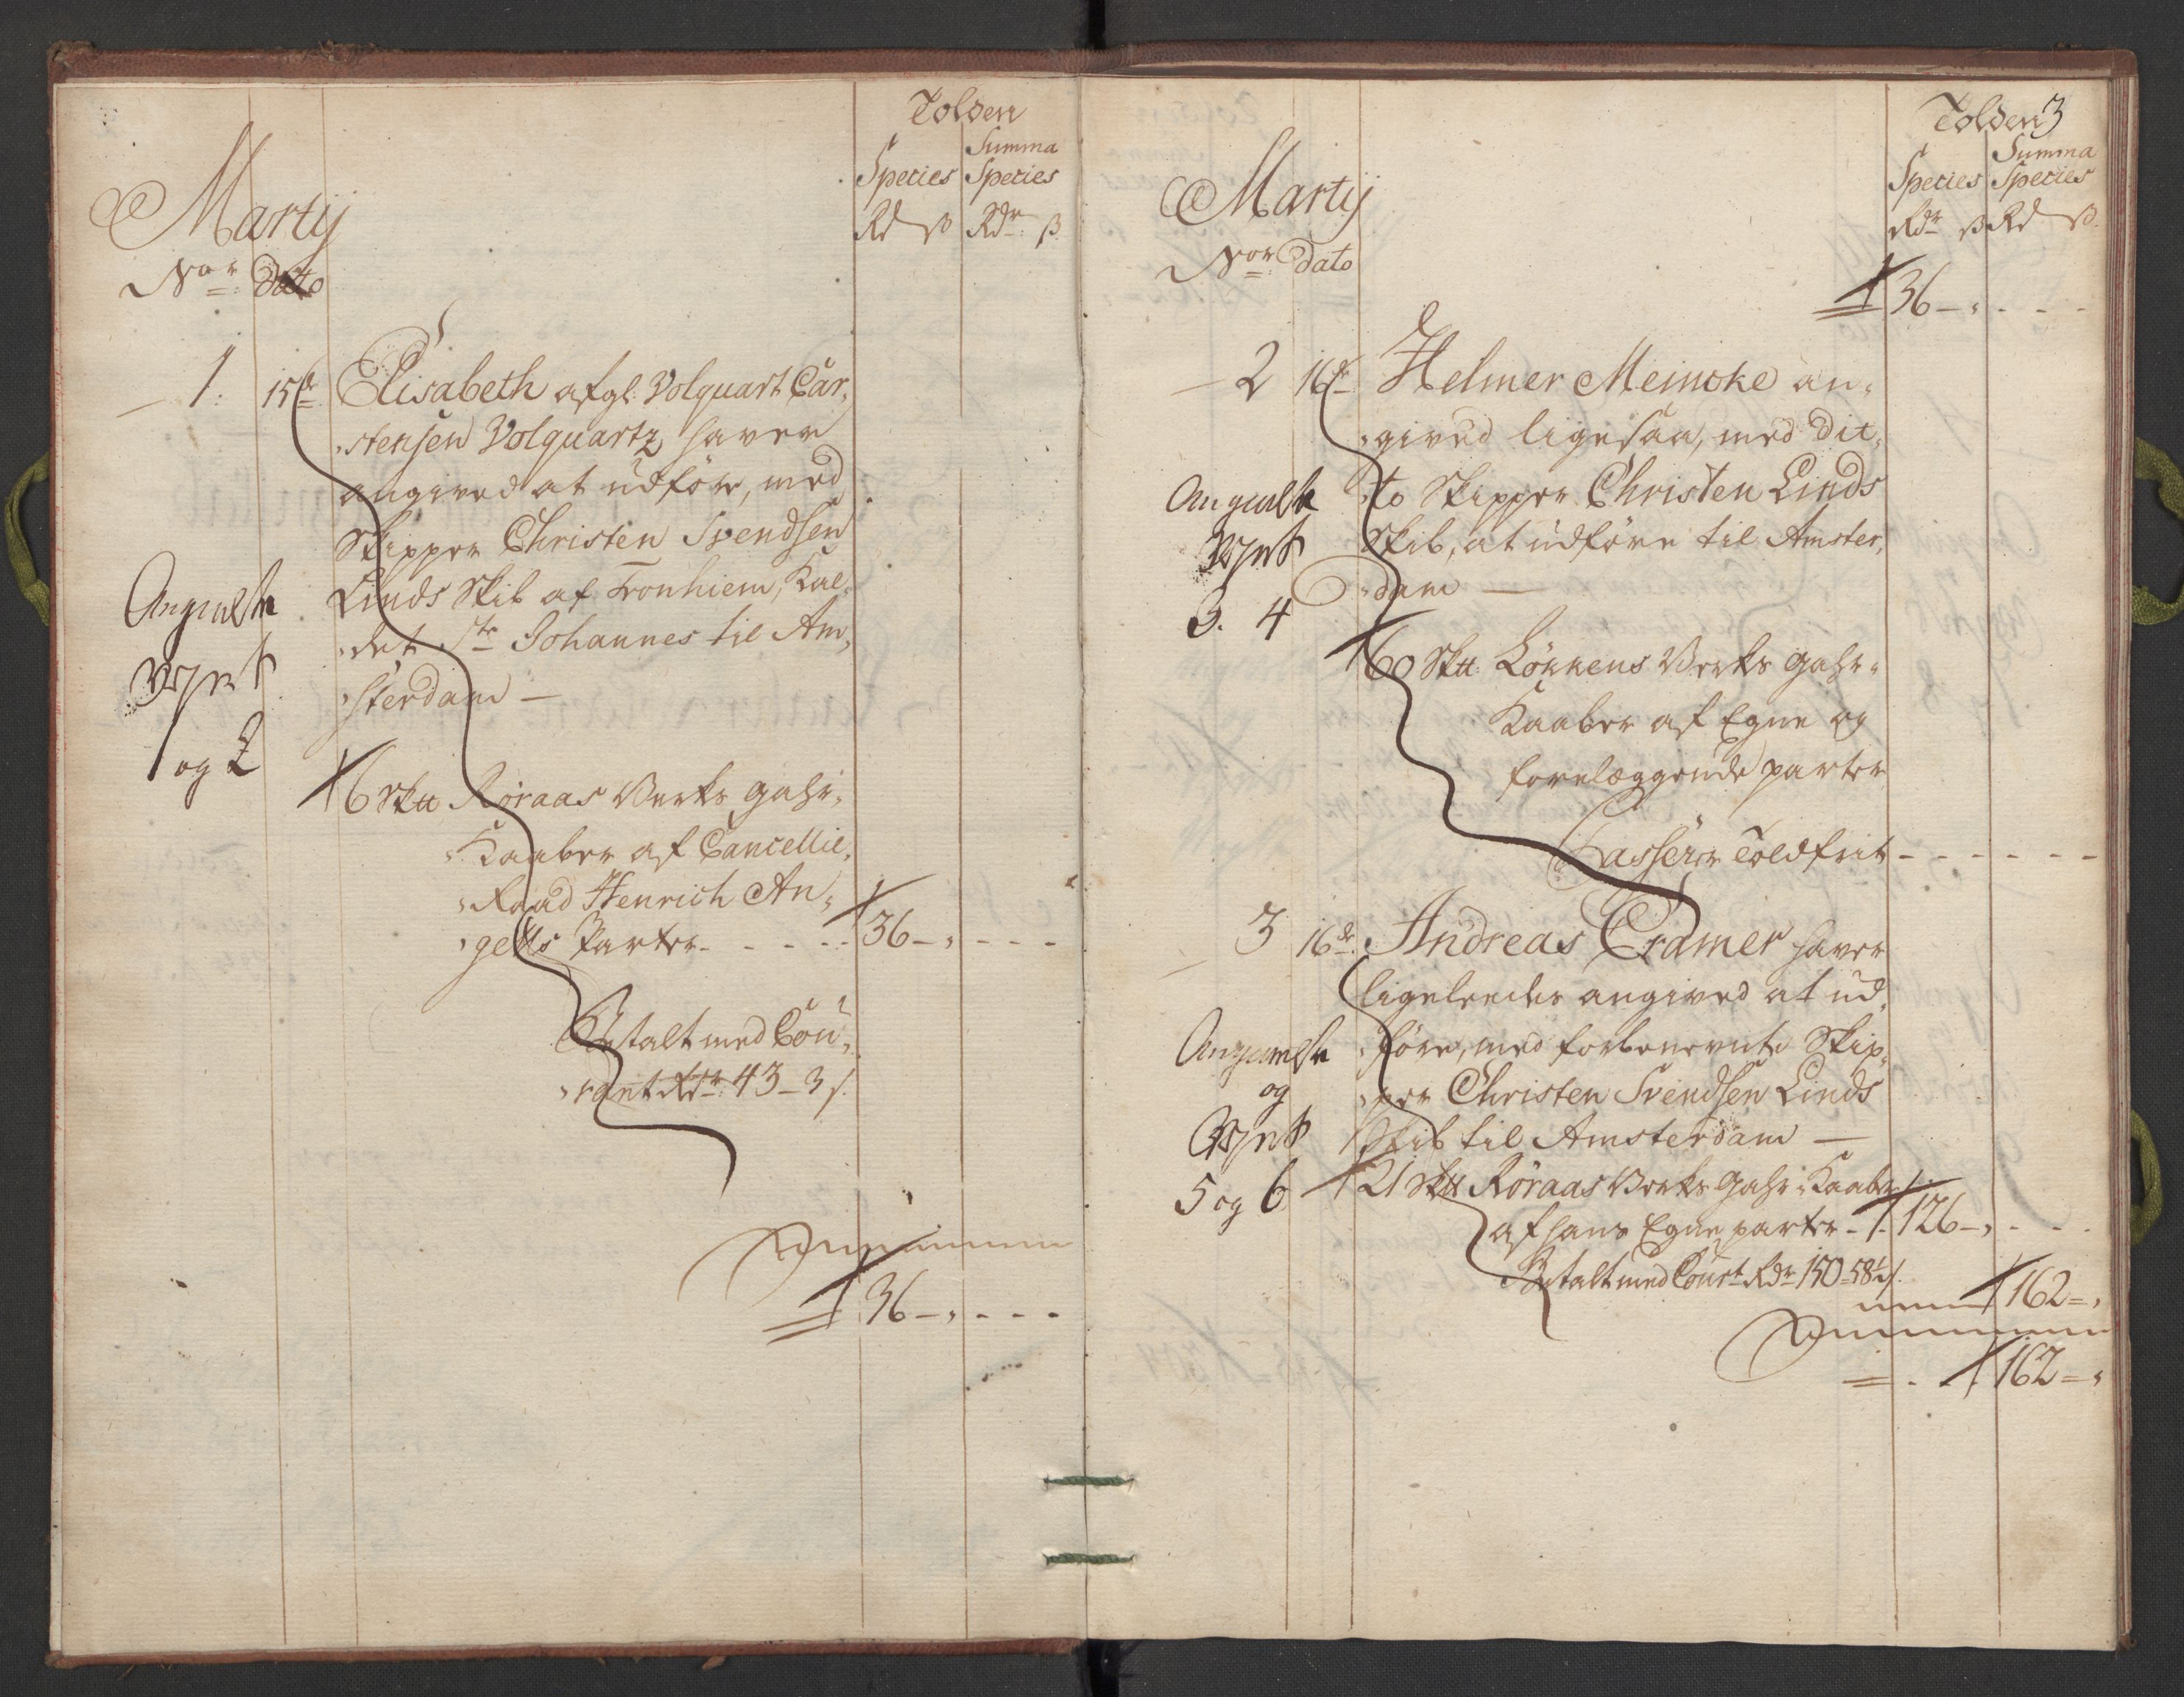 Tolden
Summa
Species Species
Rd ß Rdr ß
Martij
Nor dato
1. 15de Elisabeth afgl. Volquart Car,
,stensen Volquartz, haver
angived at udføre, med
Skipper Christen Svendsen
Linds Skib af Tronhiem, Kal,
,det Ste Johannes til Am,
,sterdam —
Angivelse
1 og 2
6 Sktt Røraas Verks gahr,
,Kaaber af Cancellie,
,Raad Henrich An,
,gells Parter - - - - 36 - , - - -
Betalt med Cou,
,rant Rdr 43 - 3 s.
36 - , - - -
Tolden 3
Summa
Species Species
Rdr ß Rd ß
Martij
Nor dato
36 - , - - -
2 16de Helmer Meincke an,
,gived ligesaa, med dit,
,to Skipper Christen Linds
Skib, at udføre til Amster,
,dam —
Angivelse
3. 4
60 Sktt Løkkens Verks gahr,
Kaaber af Egne og
forelæggende parter
Passerer Toldfrit - - - - - -
3 16de Andreas Cramer haver
ligeledes angived at ud,
,føre, med forbenevnte Skip,
,per Christen Svendsen Linds
Skib til Amsterdam —
Angivelse
og
5 og 6
21 Sktt Røraas Verks gahr, Kaaber
af hans Egne parter - 126 - , - - -
Betalt med Court Rdr 150 - 58½ s.
162 = ,
162 = ,